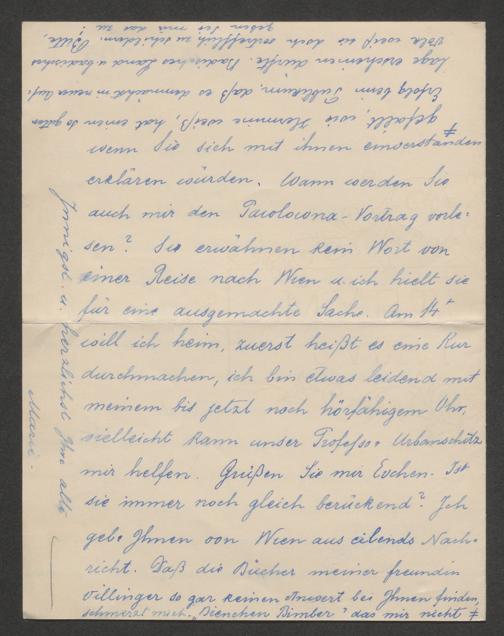 wenn Sie sich mit ihnen einverstanden
erklären würden. Wann werden Sie
auch mir den Pawlowna-Vortrag vorle-
sen? Sie erwähnen kein Wort von
einer Reise nach Wien u. ich hielt sie
für eine ausgemachte Sache. Am 14t
will ich heim, zuerst heißt es eine Kur
durchmachen, ich bin etwas leidend mit
meinem bis jetzt noch hörfähigem Ohr,
vielleicht kann unser Professor Urbanschitz
mir helfen. Grüßen Sie mir Evchen. Ist
sie immer noch gleich berückend? Ich
gebe Ihnen von Wien aus eilends Nach-
richt. Daß die Bücher meiner Freundin
Villinger so gar keinen Anwert bei Ihnen finden,
schmerzt mich. "Bienchen Bimber" das mir nicht ≠
≠ gefällt, wie Hermine weiß, hat einen so guten
Erfolg beim Publikum, daß es demnächst in neuer Auf-
lage erscheinen dürfte. Badisches Land u. badisches
Volk weiß sie doch vortrefflich zu schildern. Bitte,
geben Sie mir das zu!
Innigst u. herzlichst Ihre alte
Marie.